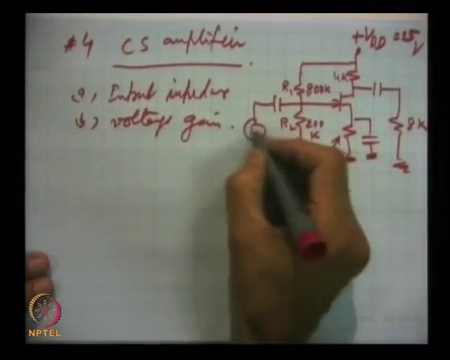 #4 CS amplifier
a, Input impedance
b, voltage gain.
+VDD = 25V
4K
R1 800K
R2 200 K
8K
NPTEL